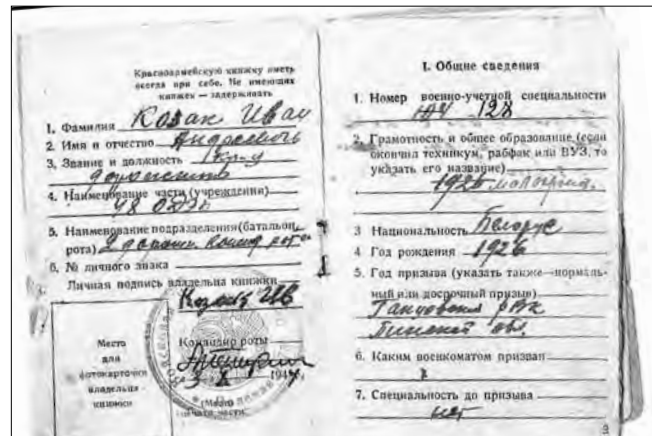 Красноармейскую книжку иметь
всегда при себе. Не имеющих
книжек — задерживать
1. Фамилия Козак Иван
2. Имя и отчество Андреевич
3. Звание и должность
4. Наименование части (учреждения)
48 ОДЭП
5. Наименование подразделения (батальон,
рота) 2
6. № личного знака
Личная подпись владельца книжки
Козак Ив
Место
для
фотокарточки
владельца
книжки
Командир роты
194
(Место
печати части)
I. Общие сведения
1. Номер военно-учетной специальности
128
2. Грамотность и общее образование (если
окончил техникум, рабфак или ВУЗ, то
указать его название)
1926
3 Национальность Белорус
4 Год рождения 1926
5. Год призыва (указать также—нормаль-
ный или досрочный призыв)
РВК
Пинской обл.
6. Каким военкоматом призван
7. Специальность до призыва
нет
3